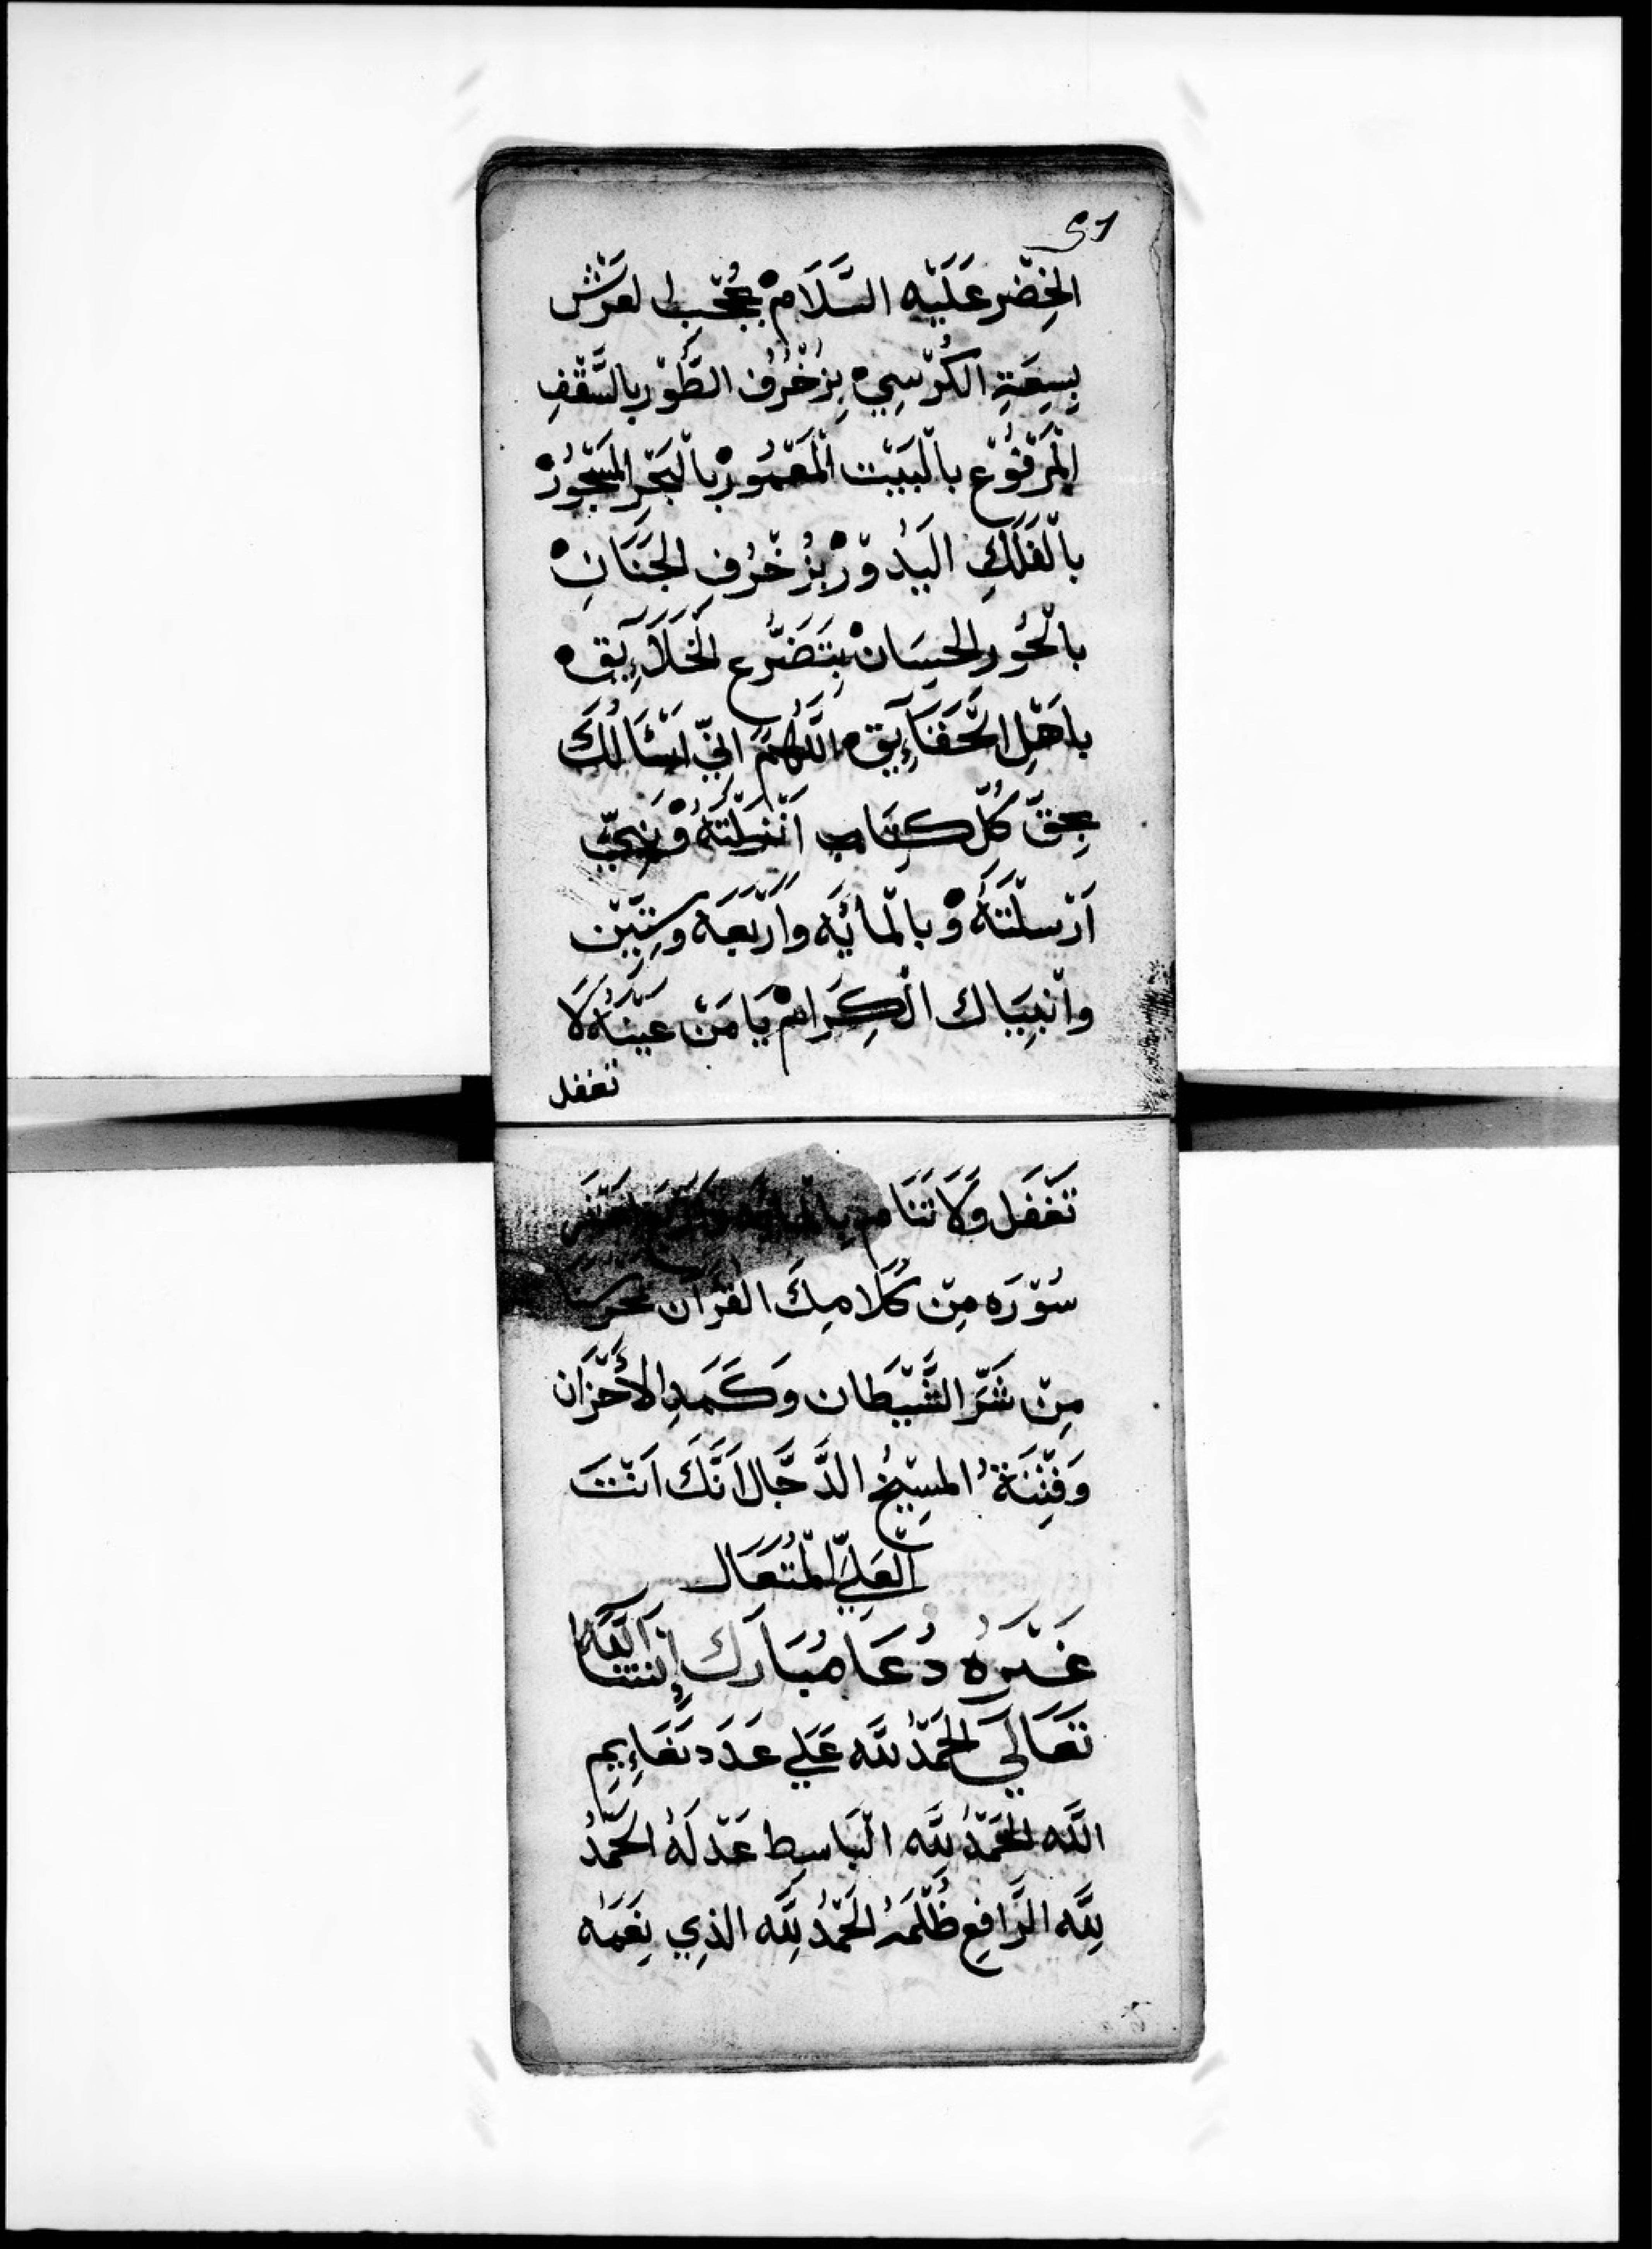 51
الخِضْر عَلَيْه السَّلَامْ بِحُجُبِ العَرْش
بِسِعَةِ الكُرْسِي بِزُخْرُفِ الطُّوْر بِالسَّقْفِ
المَرْفُوْعِ بالْبَيْت الْمَعْمُورْ بالْبَحْرِ المَسْجُورْ
بالْفَلَكِ اليَدُوْرْ بِزُخْرُفِ الجَنَانِ
بالْحُور الحِسَانْ بِتَضَرُّعِ الخَلَآئِقِ
بِاَهْلِ الحَقَآئِقِ اللَّهُمَّ اِنِّي اَسْئَالُكَ
بِحَقِّ كُلِّ كِتَاب اَنْزَلْتَهُ وْ نَبِيٍّ
اَرْسَلْتَهُ وْ بالْمائَه وَاَرْبَعَه وسِتِّيْن
وانْبِيَاك الْكِرَامْ يَا مَنْ عَيْنُهُ لَا
تغفل
تَغْفَل وَلَا تَنَام بِالْمائه وَاَرْبَعَة عَشَر
سُوْرَه مِنْ كَلَامِكَ القُرآن
مِنْ شَرِّ الشَّيْطَان وَكَمَدِ الأَحْزَان
وَفِتْنَةُ المَسِيْحِ الدَّجَّال اَنَّكَ اَنْتَ
الْعَلِيّ الْمُتَعَال
غَيْرُه دُعَا مُبَارَك إِنْشَاَاللّه
تَعَالَى الحَمْدُ للّه عَلَي عَدَد نَعَايِمِ
اللّه الحَمْدُ لِلّه الْبَاسِط عَدْلَهُ الحَمْدُ
لِلّه الرَّافِع ظُلْمَهُ الحَمْدُ لِلّه الذِي نِعَمَهُ